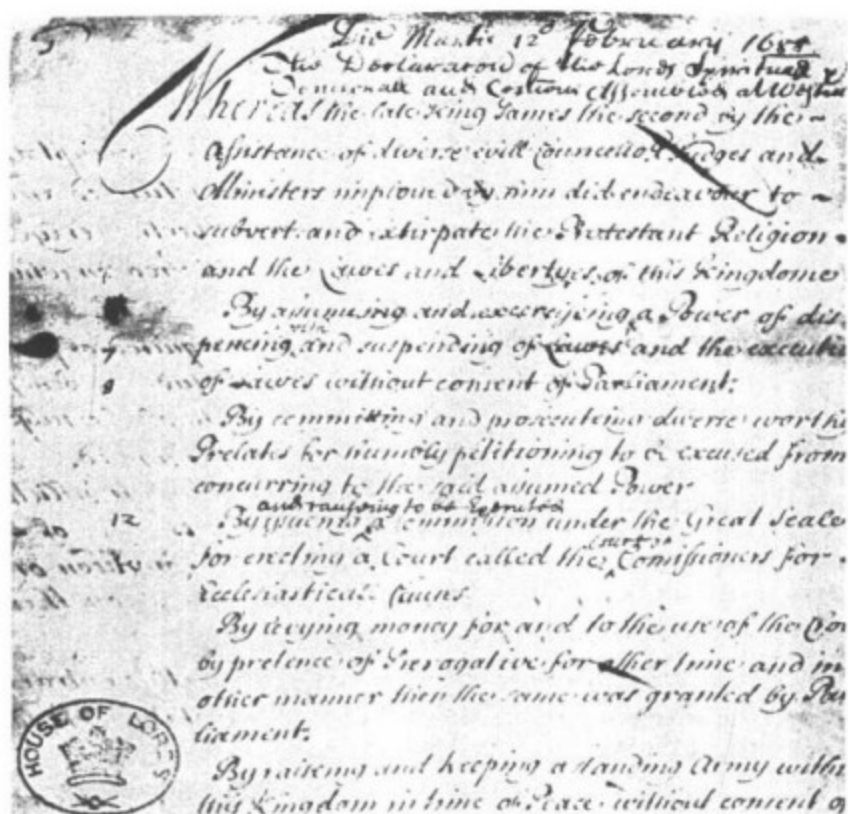 Die Martis 12º February 1688
The Declaration of the Lords Spirituall &
Temporall and Comons Assembled at
Whereas the late King James the second by the
Assistance of diverse evill Councellors Judges and
Ministers imployed by him did endeavour to
subvert and extirpate the Protestant Religion
and the Lawes and Libertyes of this Kingdome
By assuming and exercising a Power of dis
with
pencing and suspending of Lawes and the executi
of Lawes without consent of Parliament:
By committing and prosecuteing diverse worthy
Prelates for humbly petitioning to be excused from
concurring to the said assumed Power
and causing to be Executed
By issueing a Commission under the Great Seale
Court of
for erecting a Court called the Comissioners for
Ecclesiasticall Causes
By levying money for and to the use of the Cro
by pretence of Prerogative for other time and in
other manner then the same was granted by Par
liament:
By raiseing and keeping a standing Army within
this Kingdom in time of Peace without consent of
7
8
12
HOUSE OF LORDS